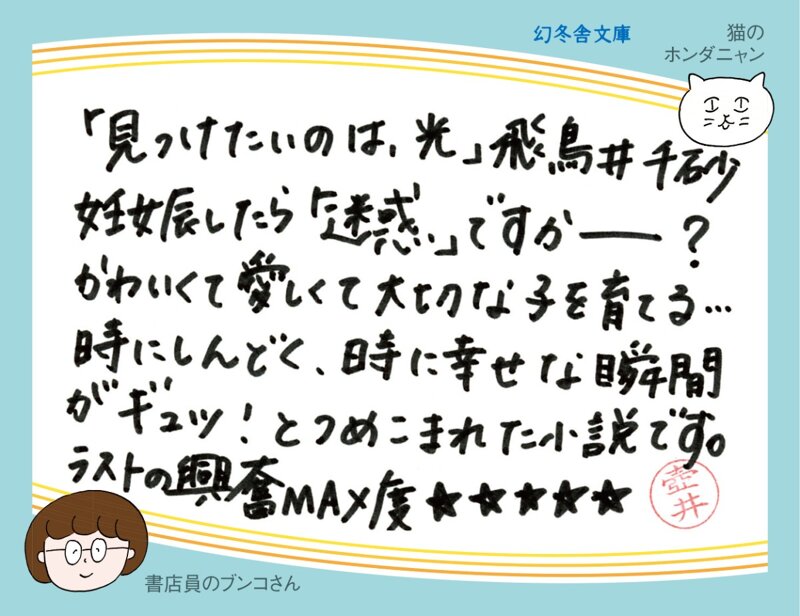 幻冬舎文庫
猫の
ホンダニャン
「見つけたいのは、光」飛鳥井千砂
妊娠したら「迷惑」ですか——?
かわいくて愛しくて大切な子を育てる…
時にしんどく、時に幸せな瞬間
がギュッ!とつめこまれた小説です。
ラストの興奮MAX度★★★★★
壺井
書店員のブンコさん